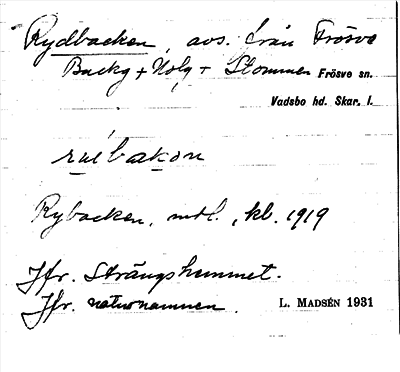 Rydbacken, avs. från Frösve
Backg + Holg + Stommen Frösve sn.
Vadsbo hd. Skar. l.
Rybacken, mtl., kb. 1919
Jfr. Strängshemmet.
Jfr. naturnamnen.
L. MADSÉN 1931